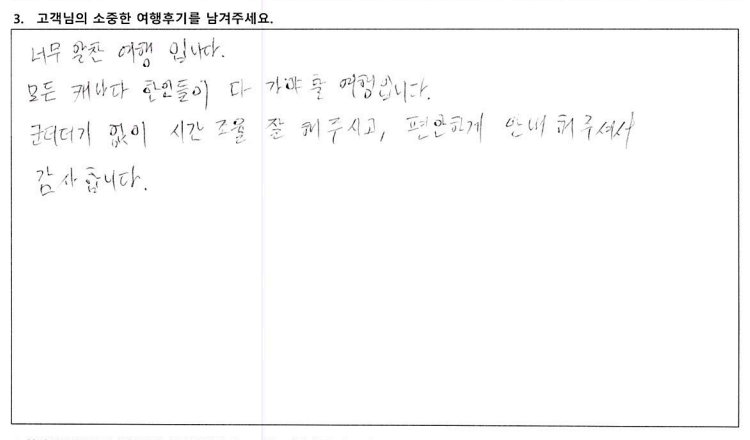 3. 고객님의 소중한 여행후기를 남겨주세요.
너무 알찬 여행 입니다.
모든 캐나다 한인들이 다 가야 할 여행입니다.
군더더기 없이 시간 조율 잘 해주시고, 편안하게 안내 해주셔서
감사합니다.